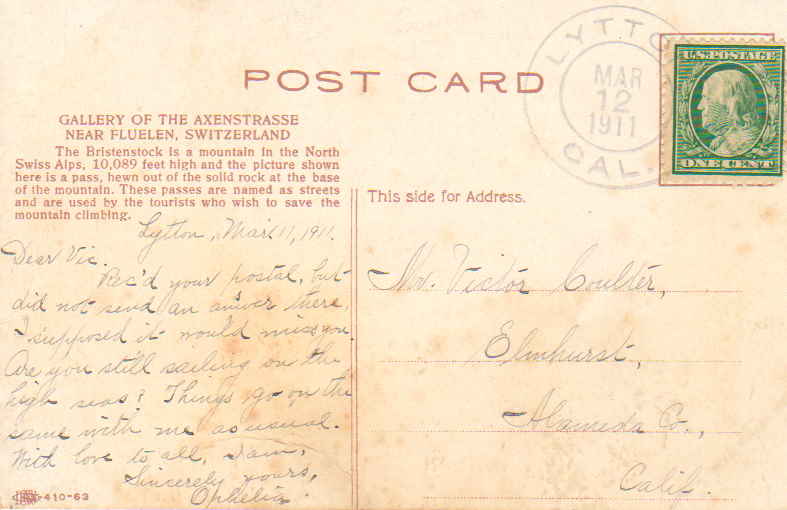 POST CARD
LYTTO
MAR
12
1911
CAL.
U.S. POSTAGE
ONE CENT
GALLERY OF THE AXENSTRASSE
NEAR FLUELEN, SWITZERLAND
The Bristenstock is a mountain in the North
Swiss Alps, 10,089 feet high and the picture shown
here is a pass, hewn out of the solid rock at the base
of the mountain. These passes are named as streets
and are used by the tourists who wish to save the
mountain climbing.
This side for Address.
Lytton, Mar. 11, 1911.
Dear Vic.
Rec'd your postal, but
did not send an answer there,
I supposed it would miss you.
Are you still sailing on the
high seas? Things go on the
same with me as usual.
With love to all, I am,
Sincerely yours,
Ophelia.
Mr. Victor Coulter,
Elmhurst,
Alameda Co.,
Calif.
410-63